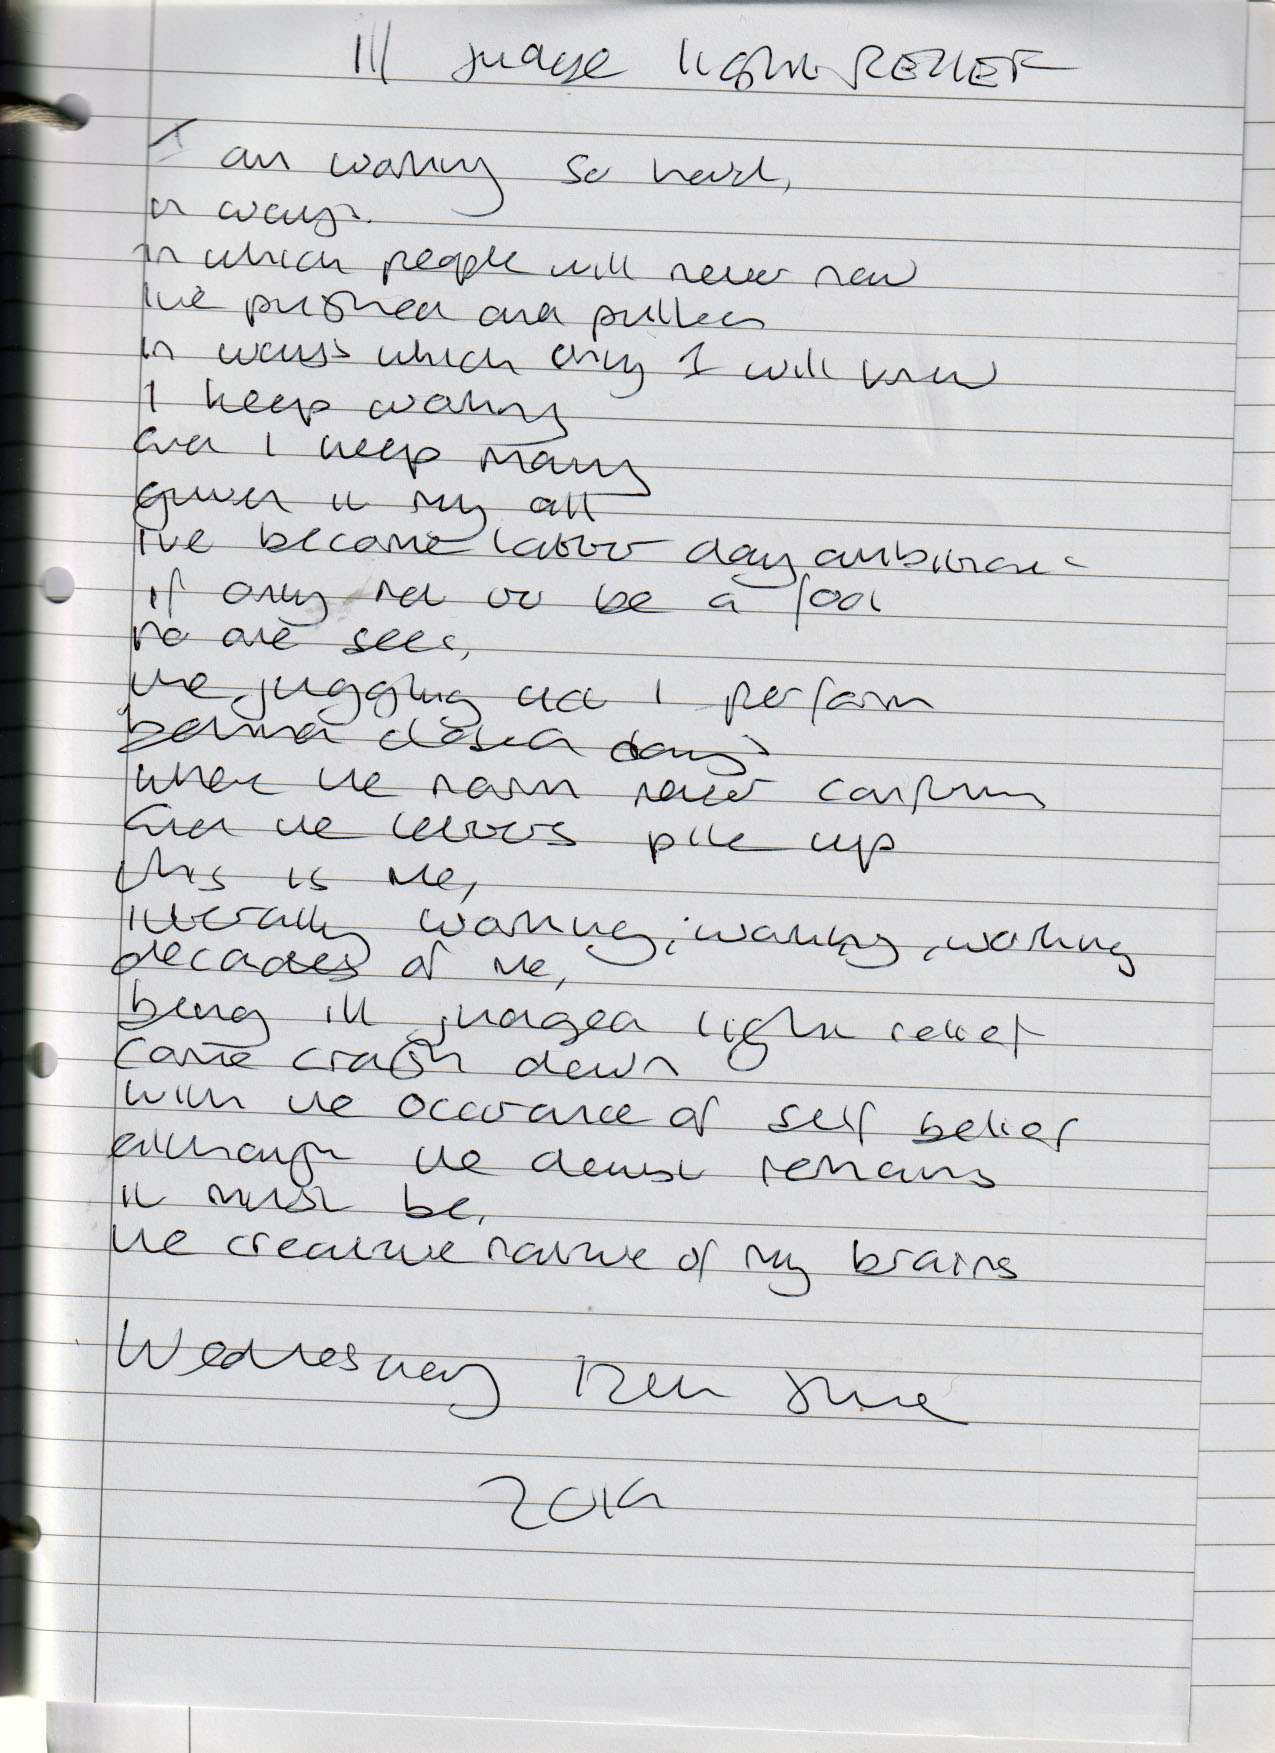 Ill judge light RELIEF
I am working so hard,
in ways.
in which people will never new
I've pushed and pulled
in ways which only I will know
I keep working
and I keep
given it my all
I've become labour day
if only not to be a fool
no one sees,
the juggling act I perform
behind closed days
where the norm never confirms
and the letters pile up
this is me,
literally working, working, working
decades of me,
being ill judged light relief
come crash down
with the occurance of self belief
although the doubt remains
it must be,
the creative nature of my brains
Wednesday 12th June
2019